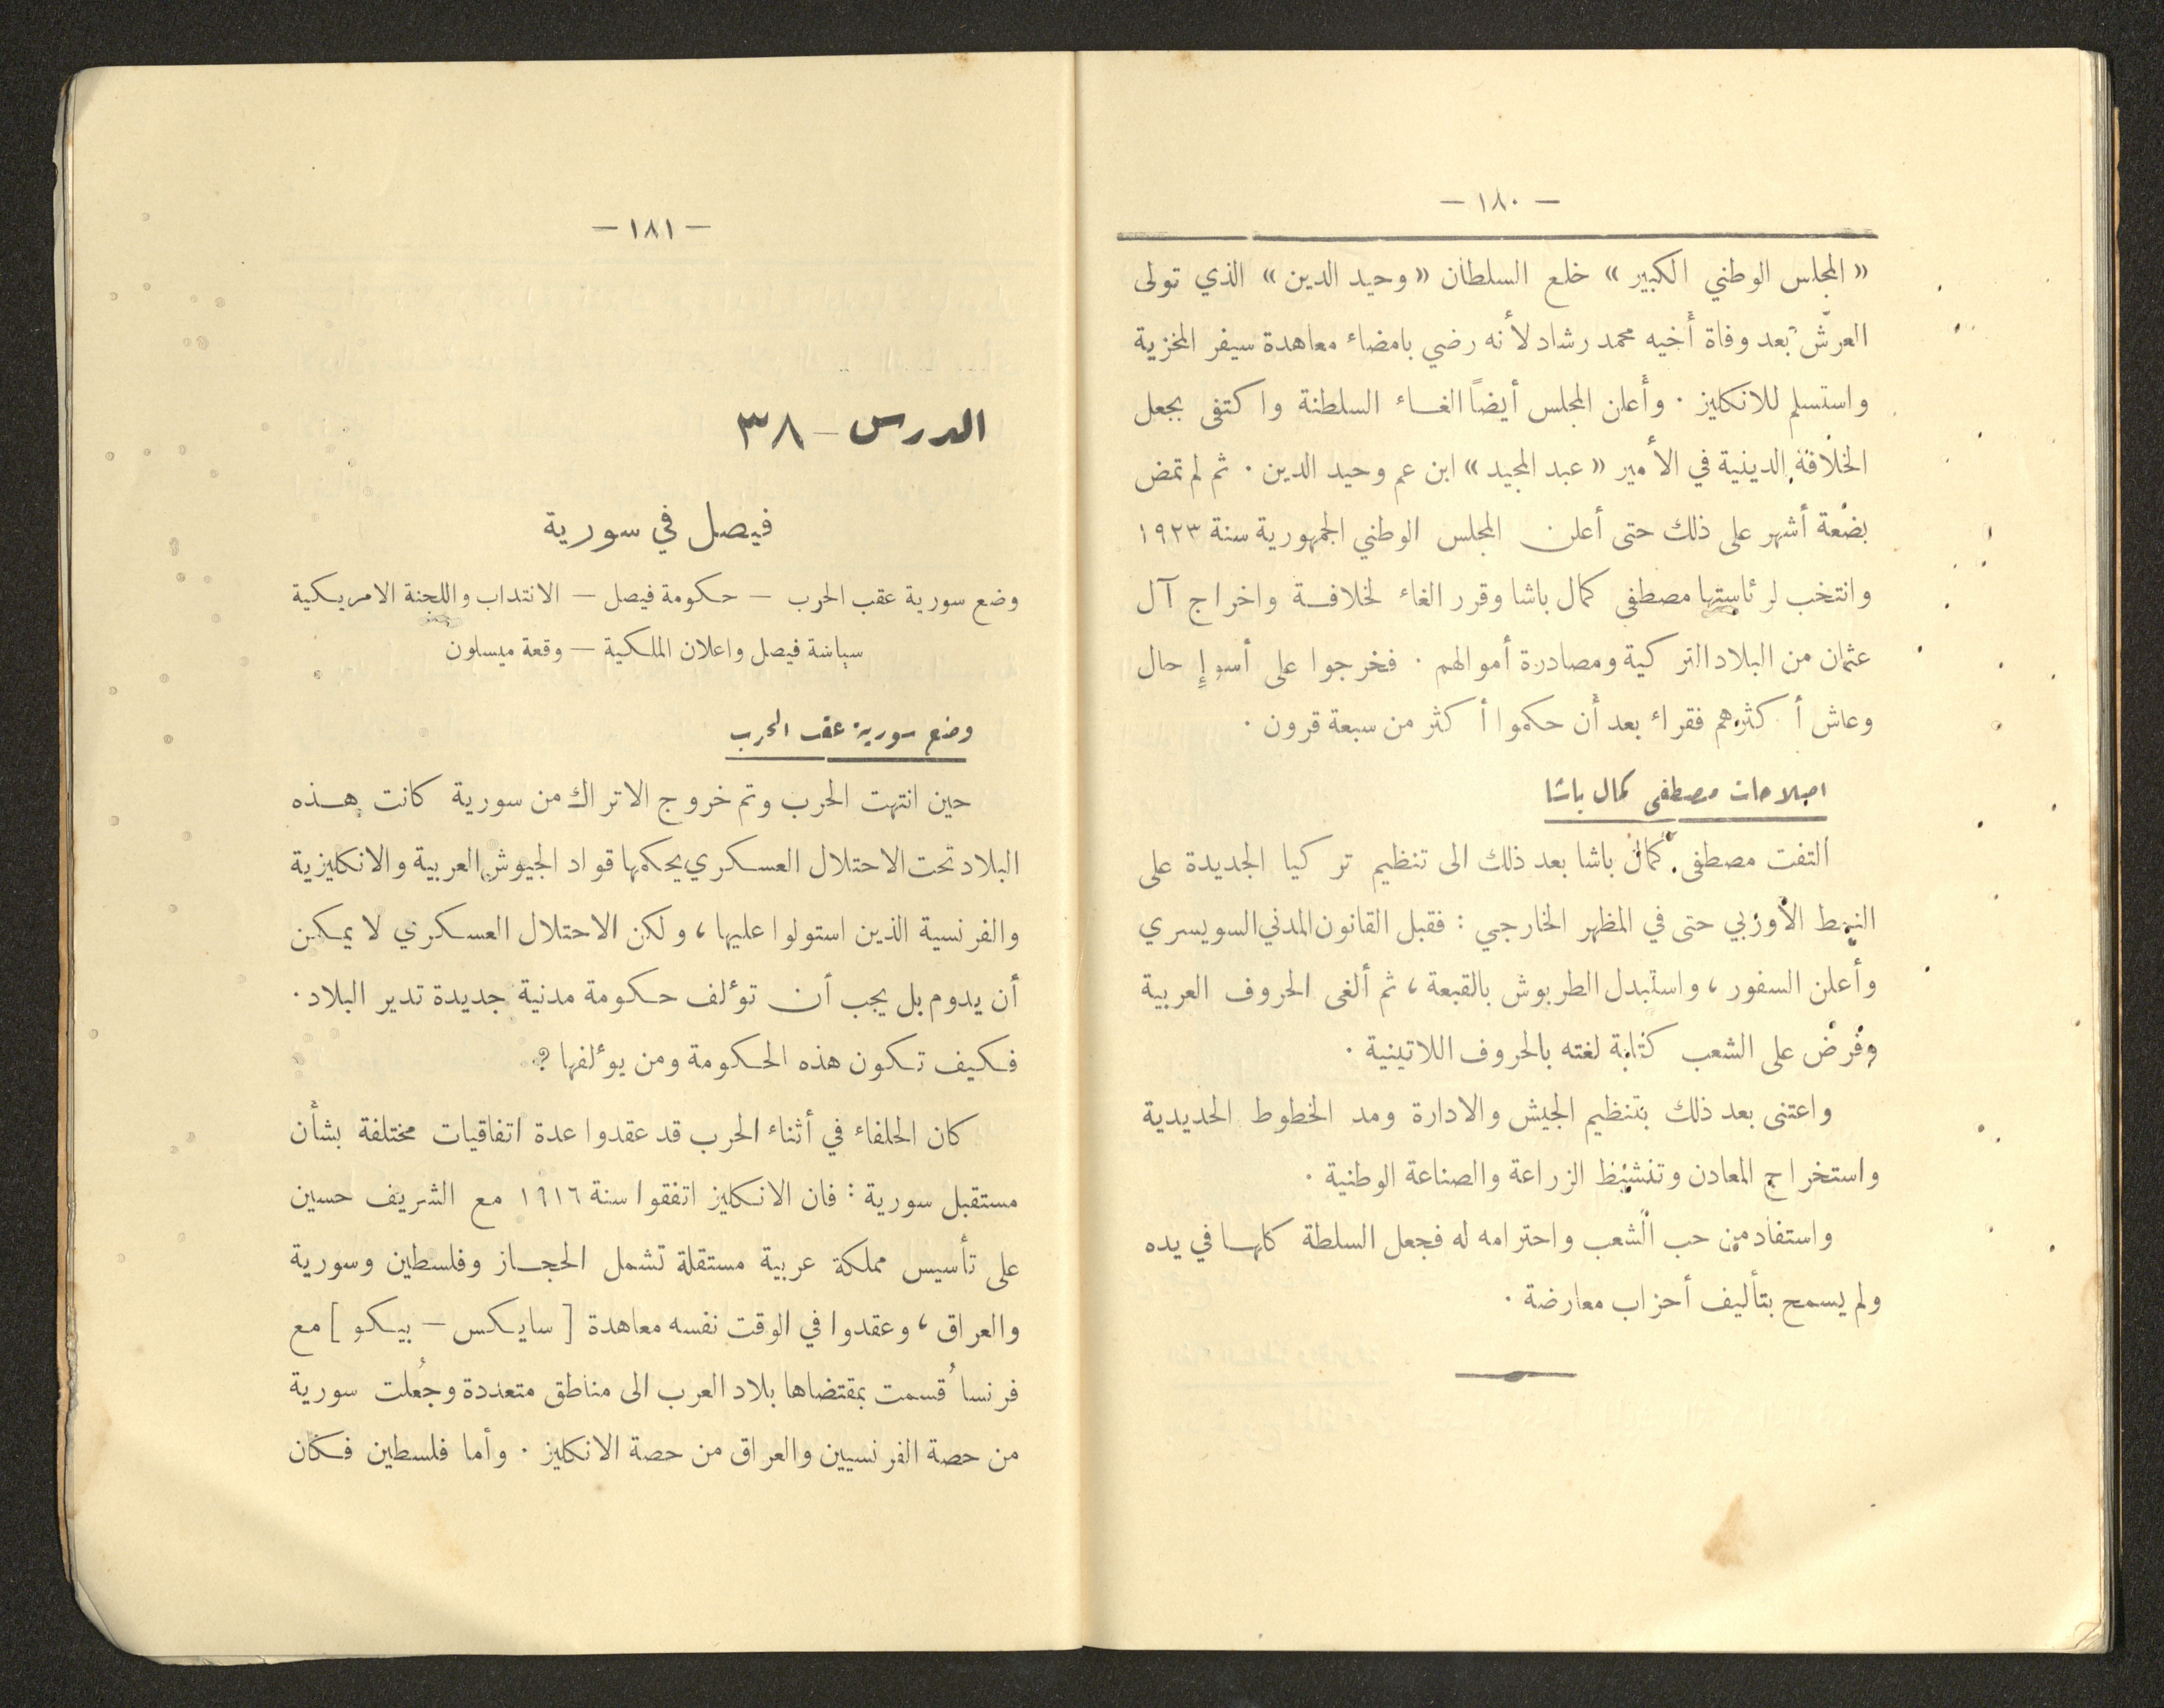 — ١٨٠ —
« المجلس الوطني الكبير » خلع السلطان « وحيد الدين » الذي تولى
العرش بعد وفاة أخيه محمد رشاد لأنه رضي بامضاء معاهدة سيفر المخزية
واستسلم للانكليز ٠ وأعلن المجلس أيضاً الغاء السلطنة واكتفى بجعل
الخلافة الدينية في الأمير « عبد المجيد » ابن عم وحيد الدين ٠ ثم لم تمض
بضعة أشهر على ذلك حتى أعلن المجلس الوطني الجمهورية سنة ١٩٢٣
وانتخب لرئاستها مصطفى كمال باشا وقرر الغاء لخلافة واخراج آل
عثمان من البلاد التركية ومصادرة أموالهم ٠ فخرجوا على أسوإ حال
وعاش أكثرهم فقراء بعد أن حكموا أكثر من سبعة قرون ٠
اصلاحات مصطفى كمال باشا
التفت مصطفى كمال باشا بعد ذلك الى تنظيم تركيا الجديدة على
النمط الأوربي حتى في المظهر الخارجي : فقبل القانون المدني السويسري
وأعلن السفور ، واستبدل الطربوش بالقبعة ، ثم ألغى الحروف العربية
وفرض على الشعب كتابة لغته بالحروف اللاتينية ٠
واعتنى بعد ذلك بتنظيم الجيش والادارة ومد الخطوط الحديدية
واستخراج المعادن وتنشيط الزراعة والصناعة الوطنية ٠
واستفاد من حب الشعب واحترامه له فجعل السلطة كلها في يده
ولم يسمح بتأليف أحزاب معارضة ٠
— ١٨١ —
الدرس — ٣٨
فيصل في سورية
وضع سورية عقب الحرب — حكومة فيصل — الانتداب واللجنة الامريكية
سياسة فيصل واعلان الملكية — وقعة ميسلون
وضع سورية عقب الحرب
حين انتهت الحرب وتم خروج الاتراك من سورية كانت هذه
البلاد تحت الاحتلال العسكري يحكمها قواد الجيوش العربية والانكليزية
والفرنسية الذين استولوا عليها ، ولكن الاحتلال العسكري لا يمكن
أن يدوم بل يجب أن تؤلف حكومة مدنية جديدة تدير البلاد ٠
فكيف تكون هذه الحكومة ومن يؤلفها ؟
كان الحلفاء في أثناء الحرب قد عقدوا عدة اتفاقيات مختلفة بشأن
مستقبل سورية : فان الانكليز اتفقوا سنة ١٩١٦ مع الشريف حسين
على تأسيس مملكة عربية مستقلة تشمل الحجاز وفلسطين وسورية
والعراق ، وعقدوا في الوقت نفسه معاهدة [ سايكس — بيكو ] مع
فرنسا قُسمت بمقتضاها بلاد العرب الى مناطق متعددة وجُعلت سورية
من حصة الفرنسيين والعراق من حصة الانكليز ٠ وأما فلسطين فكان